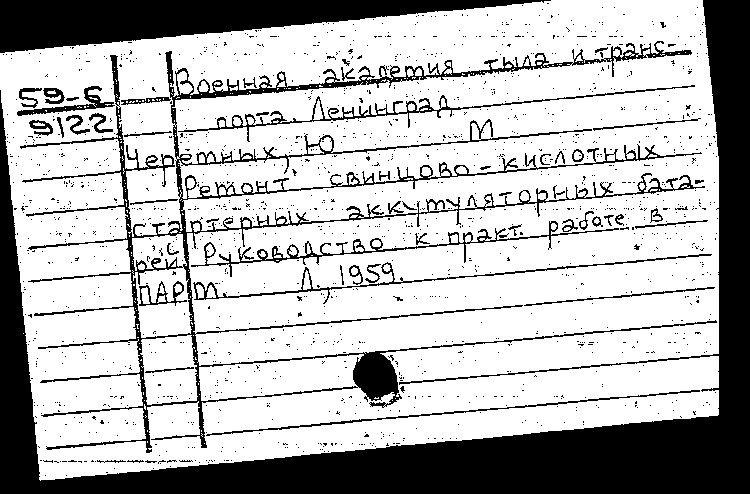 59-5
9122
Военная академия тыла и транс-
порта. Ленинград
Черемных, Ю М
Ремонт свинцово-кислотных
стартерных аккумуляторных бата-
рей. Руководство к практ. работе в
ПАРМ. Л., 1959.